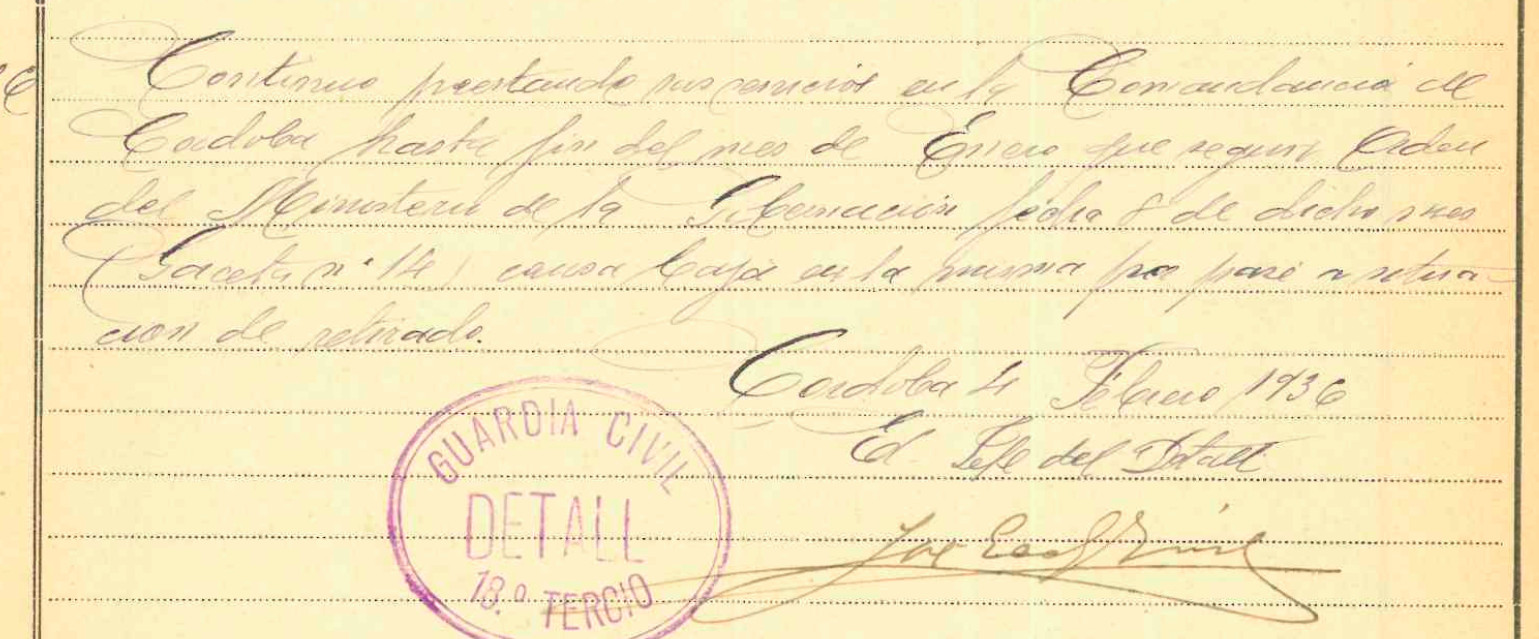 Continuo prestando sus servicios en la Comandancia de
Cordoba hasta fin del mes de Enero que segun Orden
del Ministerio de la Gobernación fecha 8 de dicho mes
(Gaceta nº 14) causa baja en la misma por pase a situa-
cion de retirado.
Cordoba 4 Febrero 1936
El Jefe del Detall
GUARDIA CIVIL
DETALL
18.º TERCIO